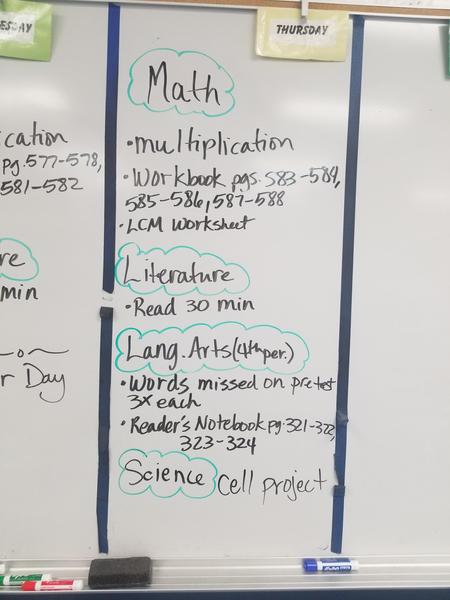 ESDAY
THURSDAY
Math
•multiplication
•Workbook pgs. 583-584,
585-586, 587-588
•LCM Worksheet
Literature
•Read 30 min
Lang. Arts (4th per.)
•Words missed on pretest
3x each
•Reader's Notebook pg. 321-322,
323-324
Science cell project
ication
pg. 577-578,
581-582
re
min
r Day